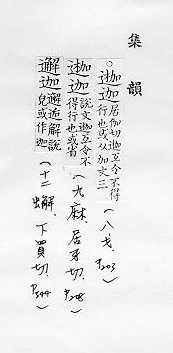 集韻
○迦迦居伽切迦互令不得行也或从加文三(八戈、P203)
迦迦說文迦互令不得行也或省(九麻、居牙切、P208)
邂迦邂逅解說皃或作迦(十二蠏、下買切、P344)